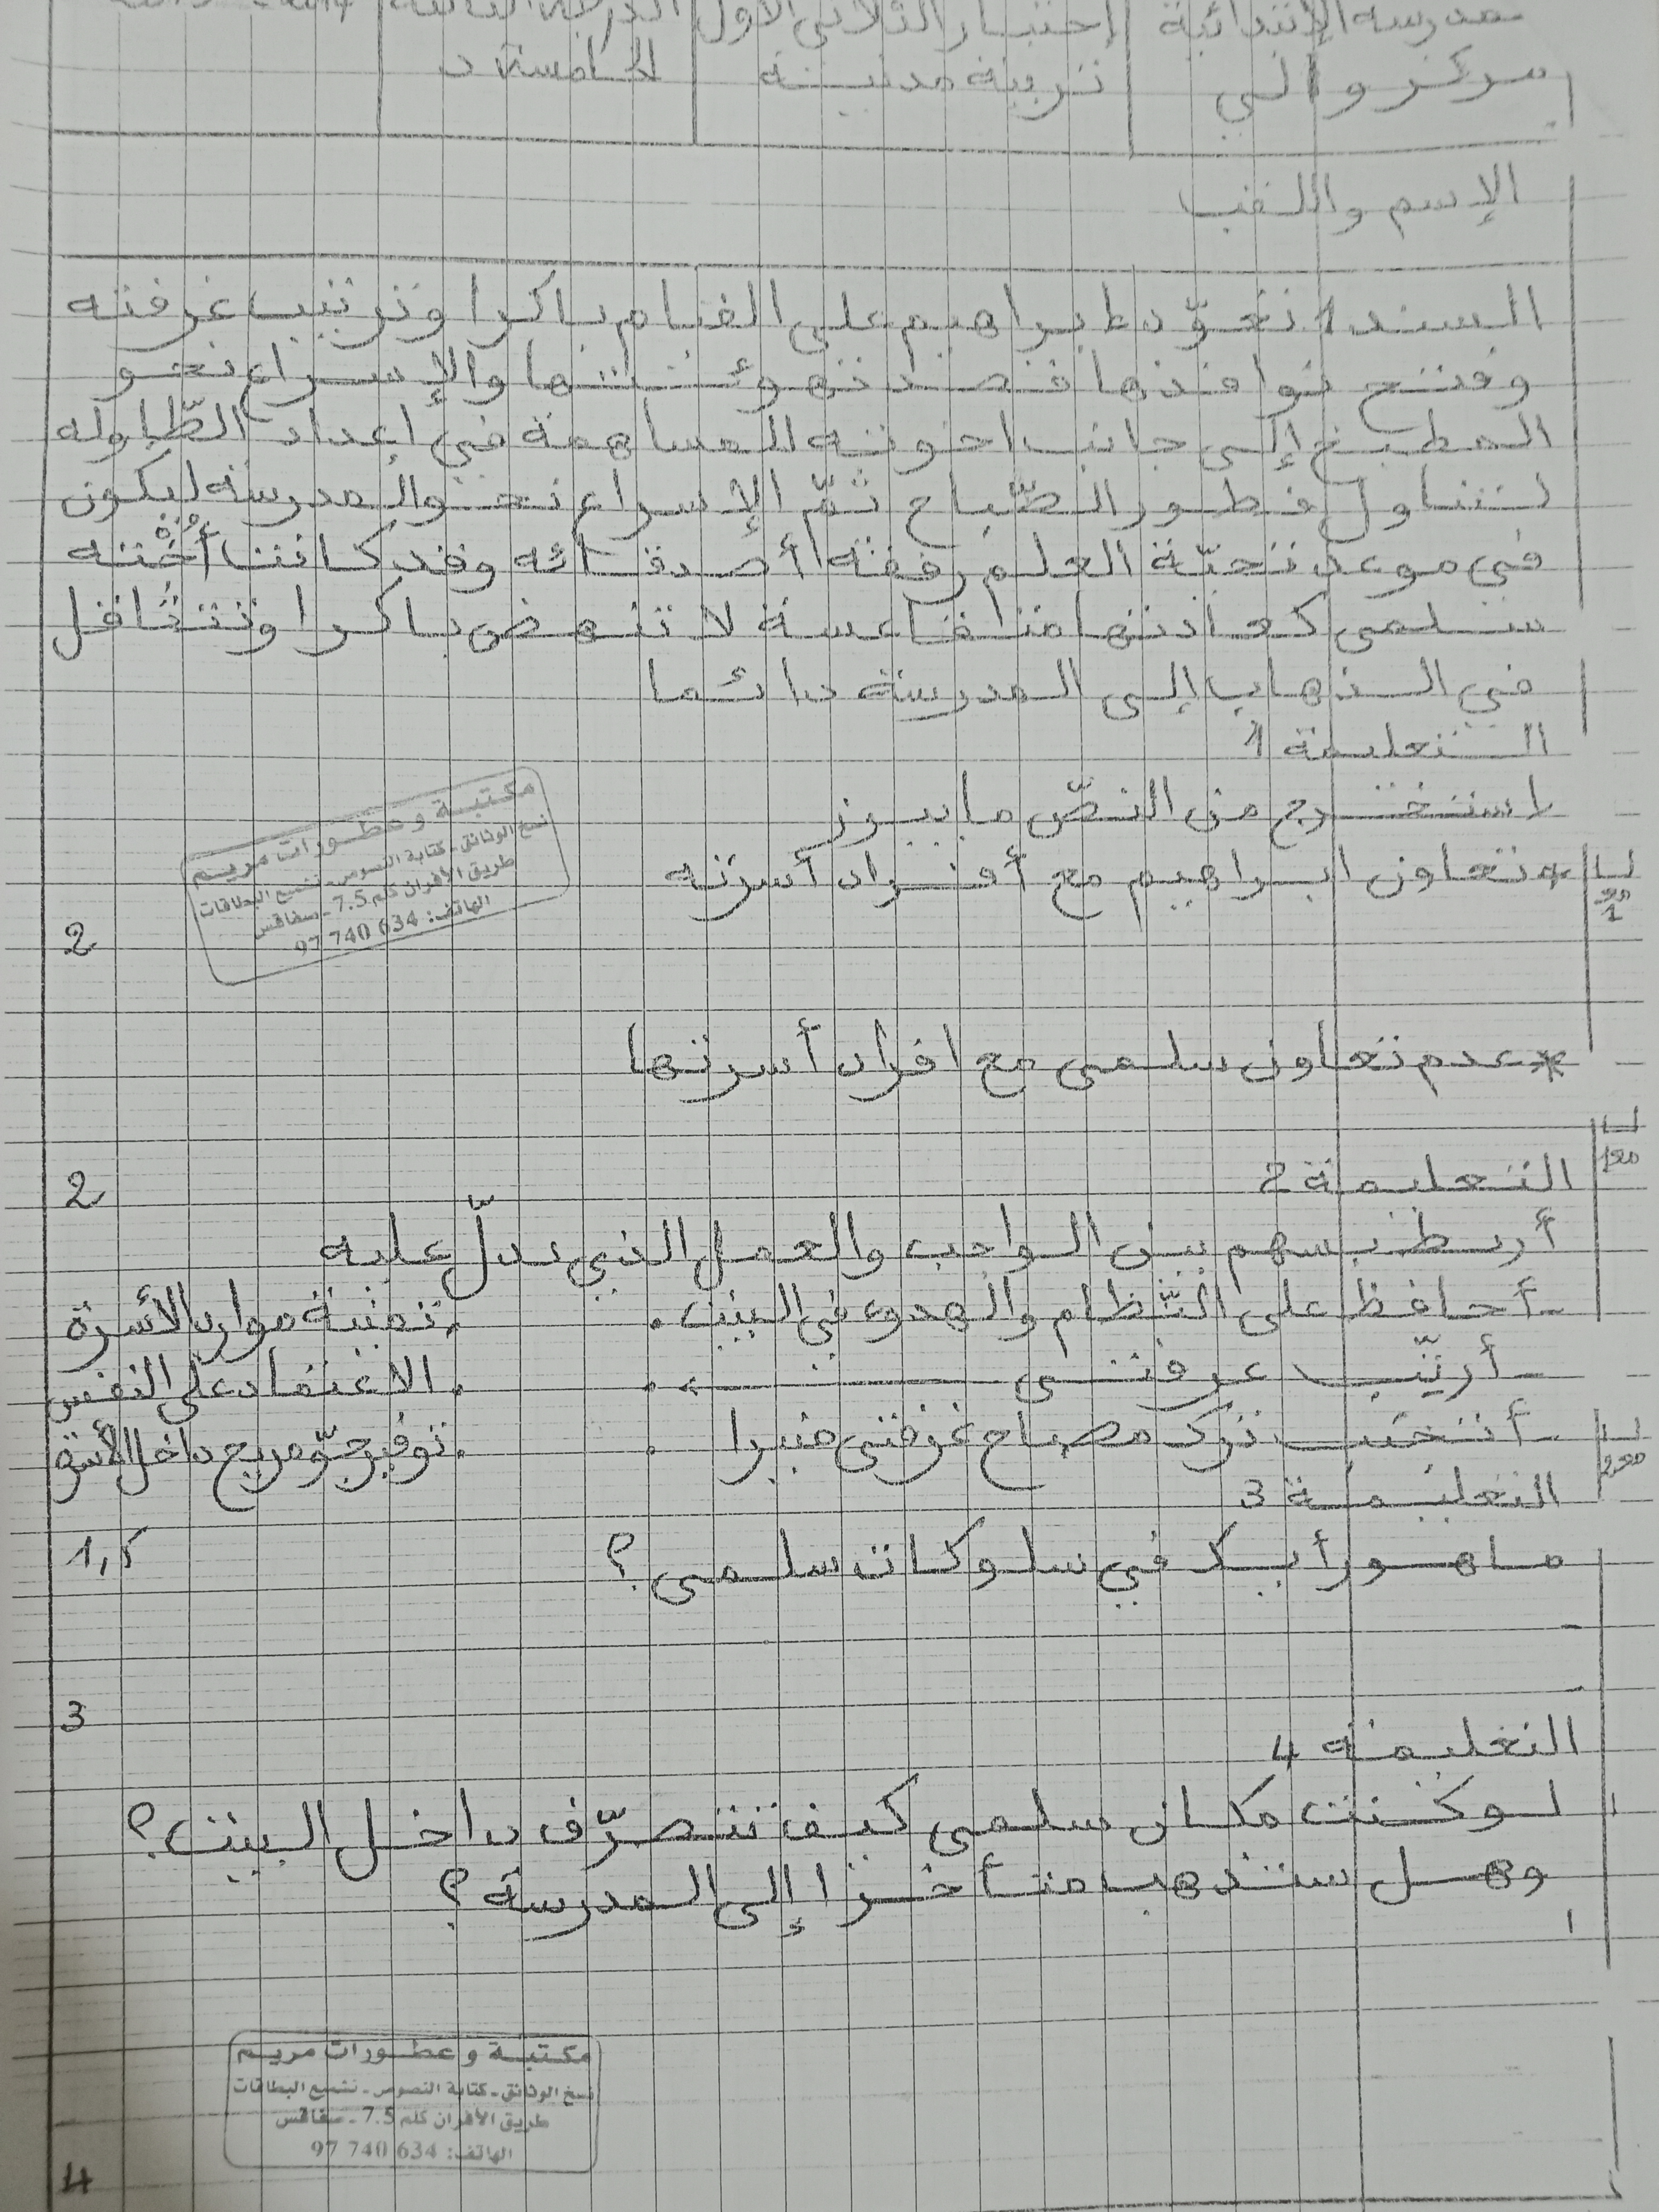 مدرسة الإبتدائية إختبار الثلاثي الأول الدرجة الثانية
مركز والي تربية مدنية الخامسة د
الإسم واللقب
السند 1 تعوّد إبراهيم على القيام باكرا وترتيب غرفته
وفتح نوافذها قصد تهوئتها والإسراع نحو
المطبخ إلى جانب اخوته للمساهمة في إعداد الطّاولة
لتناول فطور الصّباح ثمّ الإسراع نحو المدرسة ليكون
في موعد تحيّة العلم رفقة أصدقائه وقد كانت أُخْتُه
سلمى كعادتها متقاعسة لا تنهض باكرا وتتثاقل
في الذهاب إلى المدرسة دائما
التعليمة 1
استخرج من النصّ ما يبرز
* تعاون ابراهيم مع أفراد أسرته
مع 1
2
* عدم تعاون سلمى مع افراد أسرتها
التعليمة 2
مع 1
2
أربط بسهم بين الواجب والعمل الذي يدلّ عليه
- أحافظ على النّظام والهدوء في البيت . . تنمية موارد الأسرة
- أرتّب غرفتي . . الاعتماد على النفس
- أتجنّب ترك مصباح غرفتي منيرا . . توفير جوّ مريح داخل الأسرة
التعليمة 3
مع 2
1,5
ما هو رأيك في سلوكات سلمى ؟
-
-
3
التعليمة 4
لو كنت مكان سلمى كيف تتصرّف داخل البيت ؟
وهل ستذهب متأخرا إلى المدرسة ؟
4
مكتبة وعطورات مريم
نسخ الوثائق - كتابة النصوص - تشميع البطاقات
طريق الأفران كلم 7.5 - صفاقس
الهاتف: 97 740 634
مكتبة وعطورات مريم
نسخ الوثائق - كتابة النصوص - تشميع البطاقات
طريق الأفران كلم 7.5 - صفاقس
الهاتف: 97 740 634